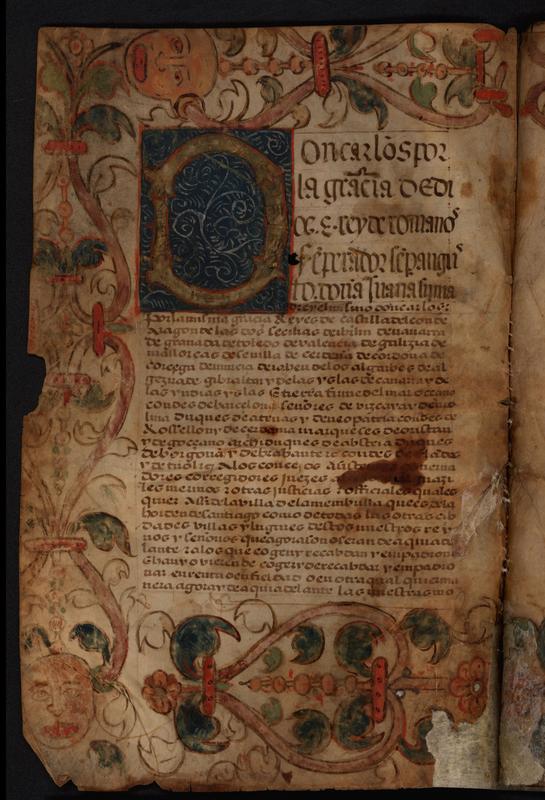 Don carlos por
la gracia de di
os. E. rey de romanos
E enperador senp augu
to. doña Juana su ma
dre y el mismo don carlos
por la misma gracia Reyes de castilla de leon de
Aragon de las dos secilias de iherlm de navarra
de granada de toledo de valencia de galizia de
mallorcas de sevilla de cerdeña de cordova de
corcega de murcia de iahen de los algarbes de al
gezira de gibraltar y de las yslas de canaria y de
las yndias yslas E tierra firme del mar oceano
condes de barcelona señores de vizcaya y de mo
lina duques de atenas y de neopatria condes de
Rosellon y de cerdania marqueses de oristan
y de goceano archiduques de abstria duques
de borgoña y de brabante condes de flandes
y de tirol A los concejos
dores corregidores juezes
les merinos y otras justicias y officiales quales
quier Asi de la villa de la menbrilla que es de la
horden de santiago como de todas las otras cib
dades villas y lugares destos nuestros rey
nos y señorios que agora son o seran de aqui ade
lante y a los que cogeys y recabdays y enpadronays
E havido o vieren de coger y de recabdar y enpadro
nar en renta o en fieldad o en otra qualquier ma
nera agora y de aqui adelante las nuestras mo